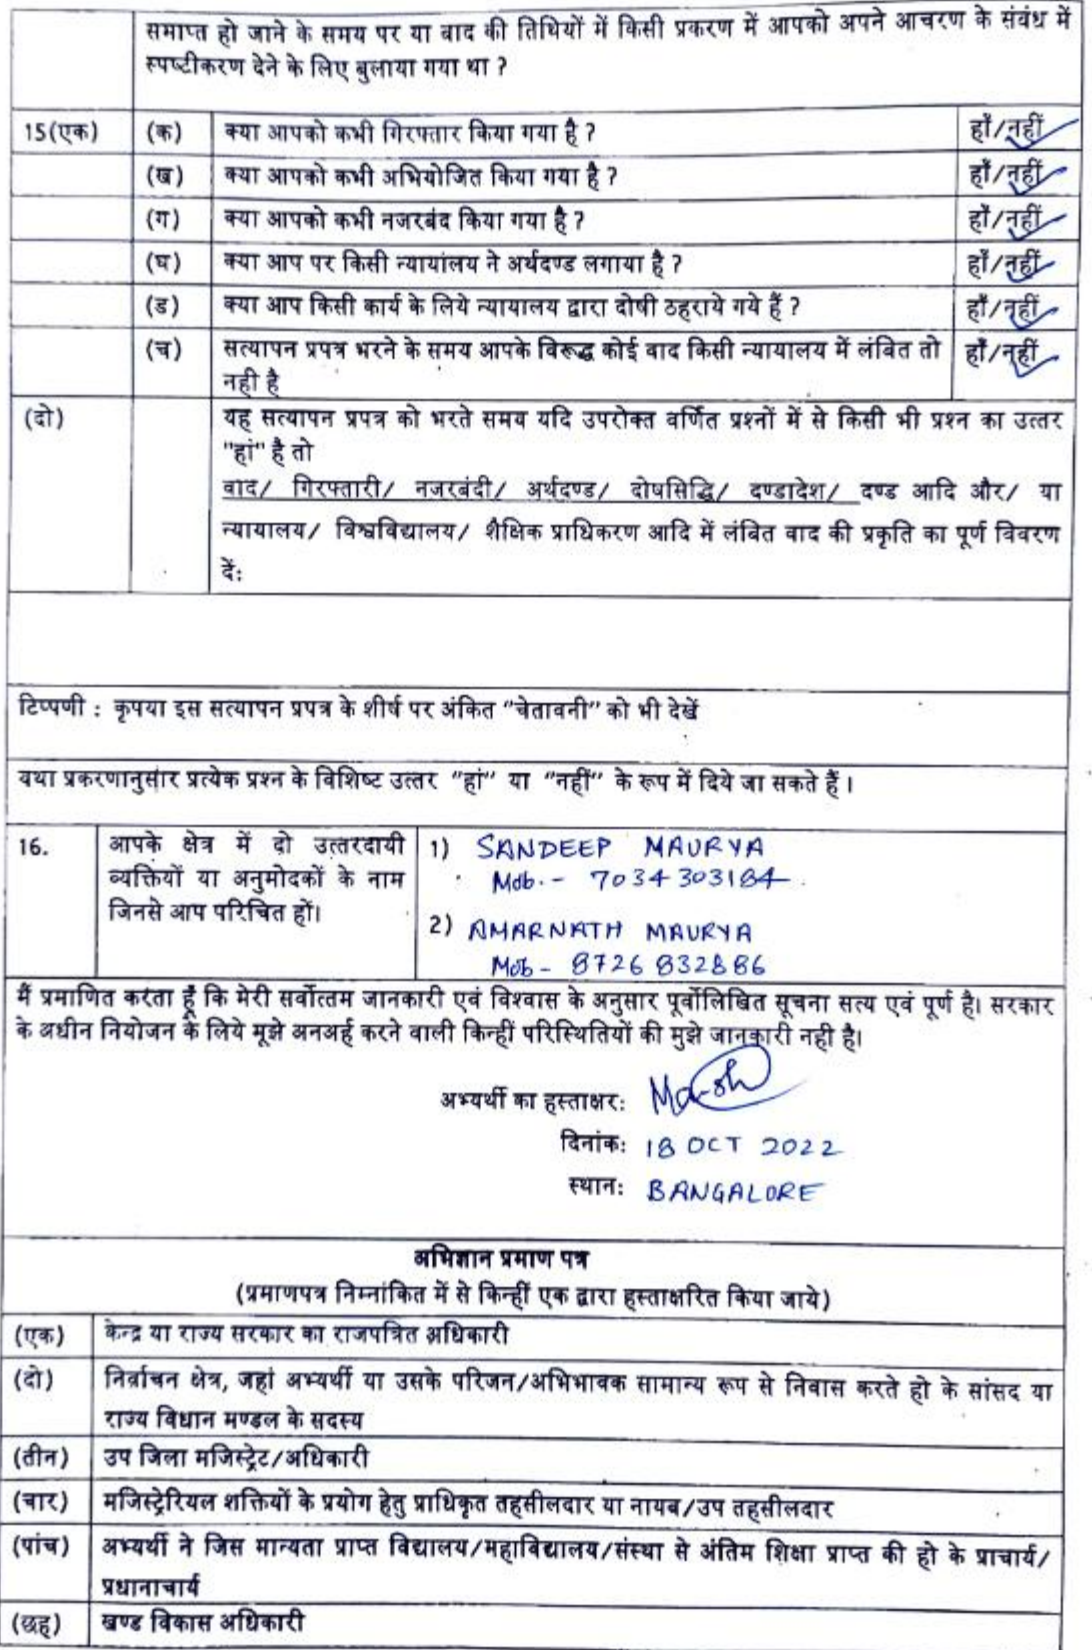 समाप्त हो जाने के समय पर या बाद की तिथियों में किसी प्रकरण में आपको अपने आचरण के संबंध में
स्पष्टीकरण देने के लिए बुलाया गया था ?
15(एक) (क) क्या आपको कभी गिरफ्तार किया गया है ? हाँ/नहीं
(ख) क्या आपको कभी अभियोजित किया गया है ? हाँ/नहीं
(ग) क्या आपको कभी नजरबंद किया गया है ? हाँ/नहीं
(घ) क्या आप पर किसी न्यायांलय ने अर्थदण्ड लगाया है ? हाँ/नहीं
(ड) क्या आप किसी कार्य के लिये न्यायालय द्वारा दोषी ठहराये गये हैं ? हाँ/नहीं
(च) सत्यापन प्रपत्र भरने के समय आपके विरूद्ध कोई वाद किसी न्यायालय में लंबित तो हाँ/नहीं
नही है
(दो) यह सत्यापन प्रपत्र को भरते समय यदि उपरोक्त वर्णित प्रश्नों में से किसी भी प्रश्न का उत्तर
"हां" है तो
वाद/ गिरफ्तारी/ नजरबंदी/ अर्थदण्ड/ दोषसिद्धि/ दण्डादेश/ दण्ड आदि और/ या
न्यायालय/ विश्वविद्यालय/ शैक्षिक प्राधिकरण आदि में लंबित वाद की प्रकृति का पूर्ण विवरण
दें:
टिप्पणी : कृपया इस सत्यापन प्रपत्र के शीर्ष पर अंकित "चेतावनी" को भी देखें
यथा प्रकरणानुसार प्रत्येक प्रश्न के विशिष्ट उत्तर "हां" या "नहीं" के रूप में दिये जा सकते हैं ।
16. आपके क्षेत्र में दो उत्तरदायी 1) SANDEEP MAURYA
व्यक्तियों या अनुमोदकों के नाम Mob. - 7034303184
जिनसे आप परिचित हों।
2) AMARNATH MAURYA
Mob - 8726832886
मैं प्रमाणित करता हूँ कि मेरी सर्वोत्तम जानकारी एवं विश्वास के अनुसार पूर्वोलिखित सूचना सत्य एवं पूर्ण है। सरकार
के अधीन नियोजन के लिये मूझे अनअर्ह करने वाली किन्हीं परिस्थितियों की मुझे जानकारी नही है।
अभ्यर्थी का हस्ताक्षर:
दिनांक: 18 OCT 2022
स्थान: BANGALORE
अभिज्ञान प्रमाण पत्र
(प्रमाणपत्र निम्नांकित में से किन्हीं एक द्वारा हस्ताक्षरित किया जाये)
(एक) केन्द्र या राज्य सरकार का राजपत्रित अधिकारी
(दो) निर्वाचन क्षेत्र, जहां अभ्यर्थी या उसके परिजन/अभिभावक सामान्य रूप से निवास करते हो के सांसद या
राज्य विधान मण्डल के सदस्य
(तीन) उप जिला मजिस्ट्रेट/अधिकारी
(चार) मजिस्ट्रेरियल शक्तियों के प्रयोग हेतु प्राधिकृत तहसीलदार या नायब/उप तहसीलदार
(पांच) अभ्यर्थी ने जिस मान्यता प्राप्त विद्यालय/महाविद्यालय/संस्था से अंतिम शिक्षा प्राप्त की हो के प्राचार्य/
प्रधानाचार्य
(छह) खण्ड विकास अधिकारी